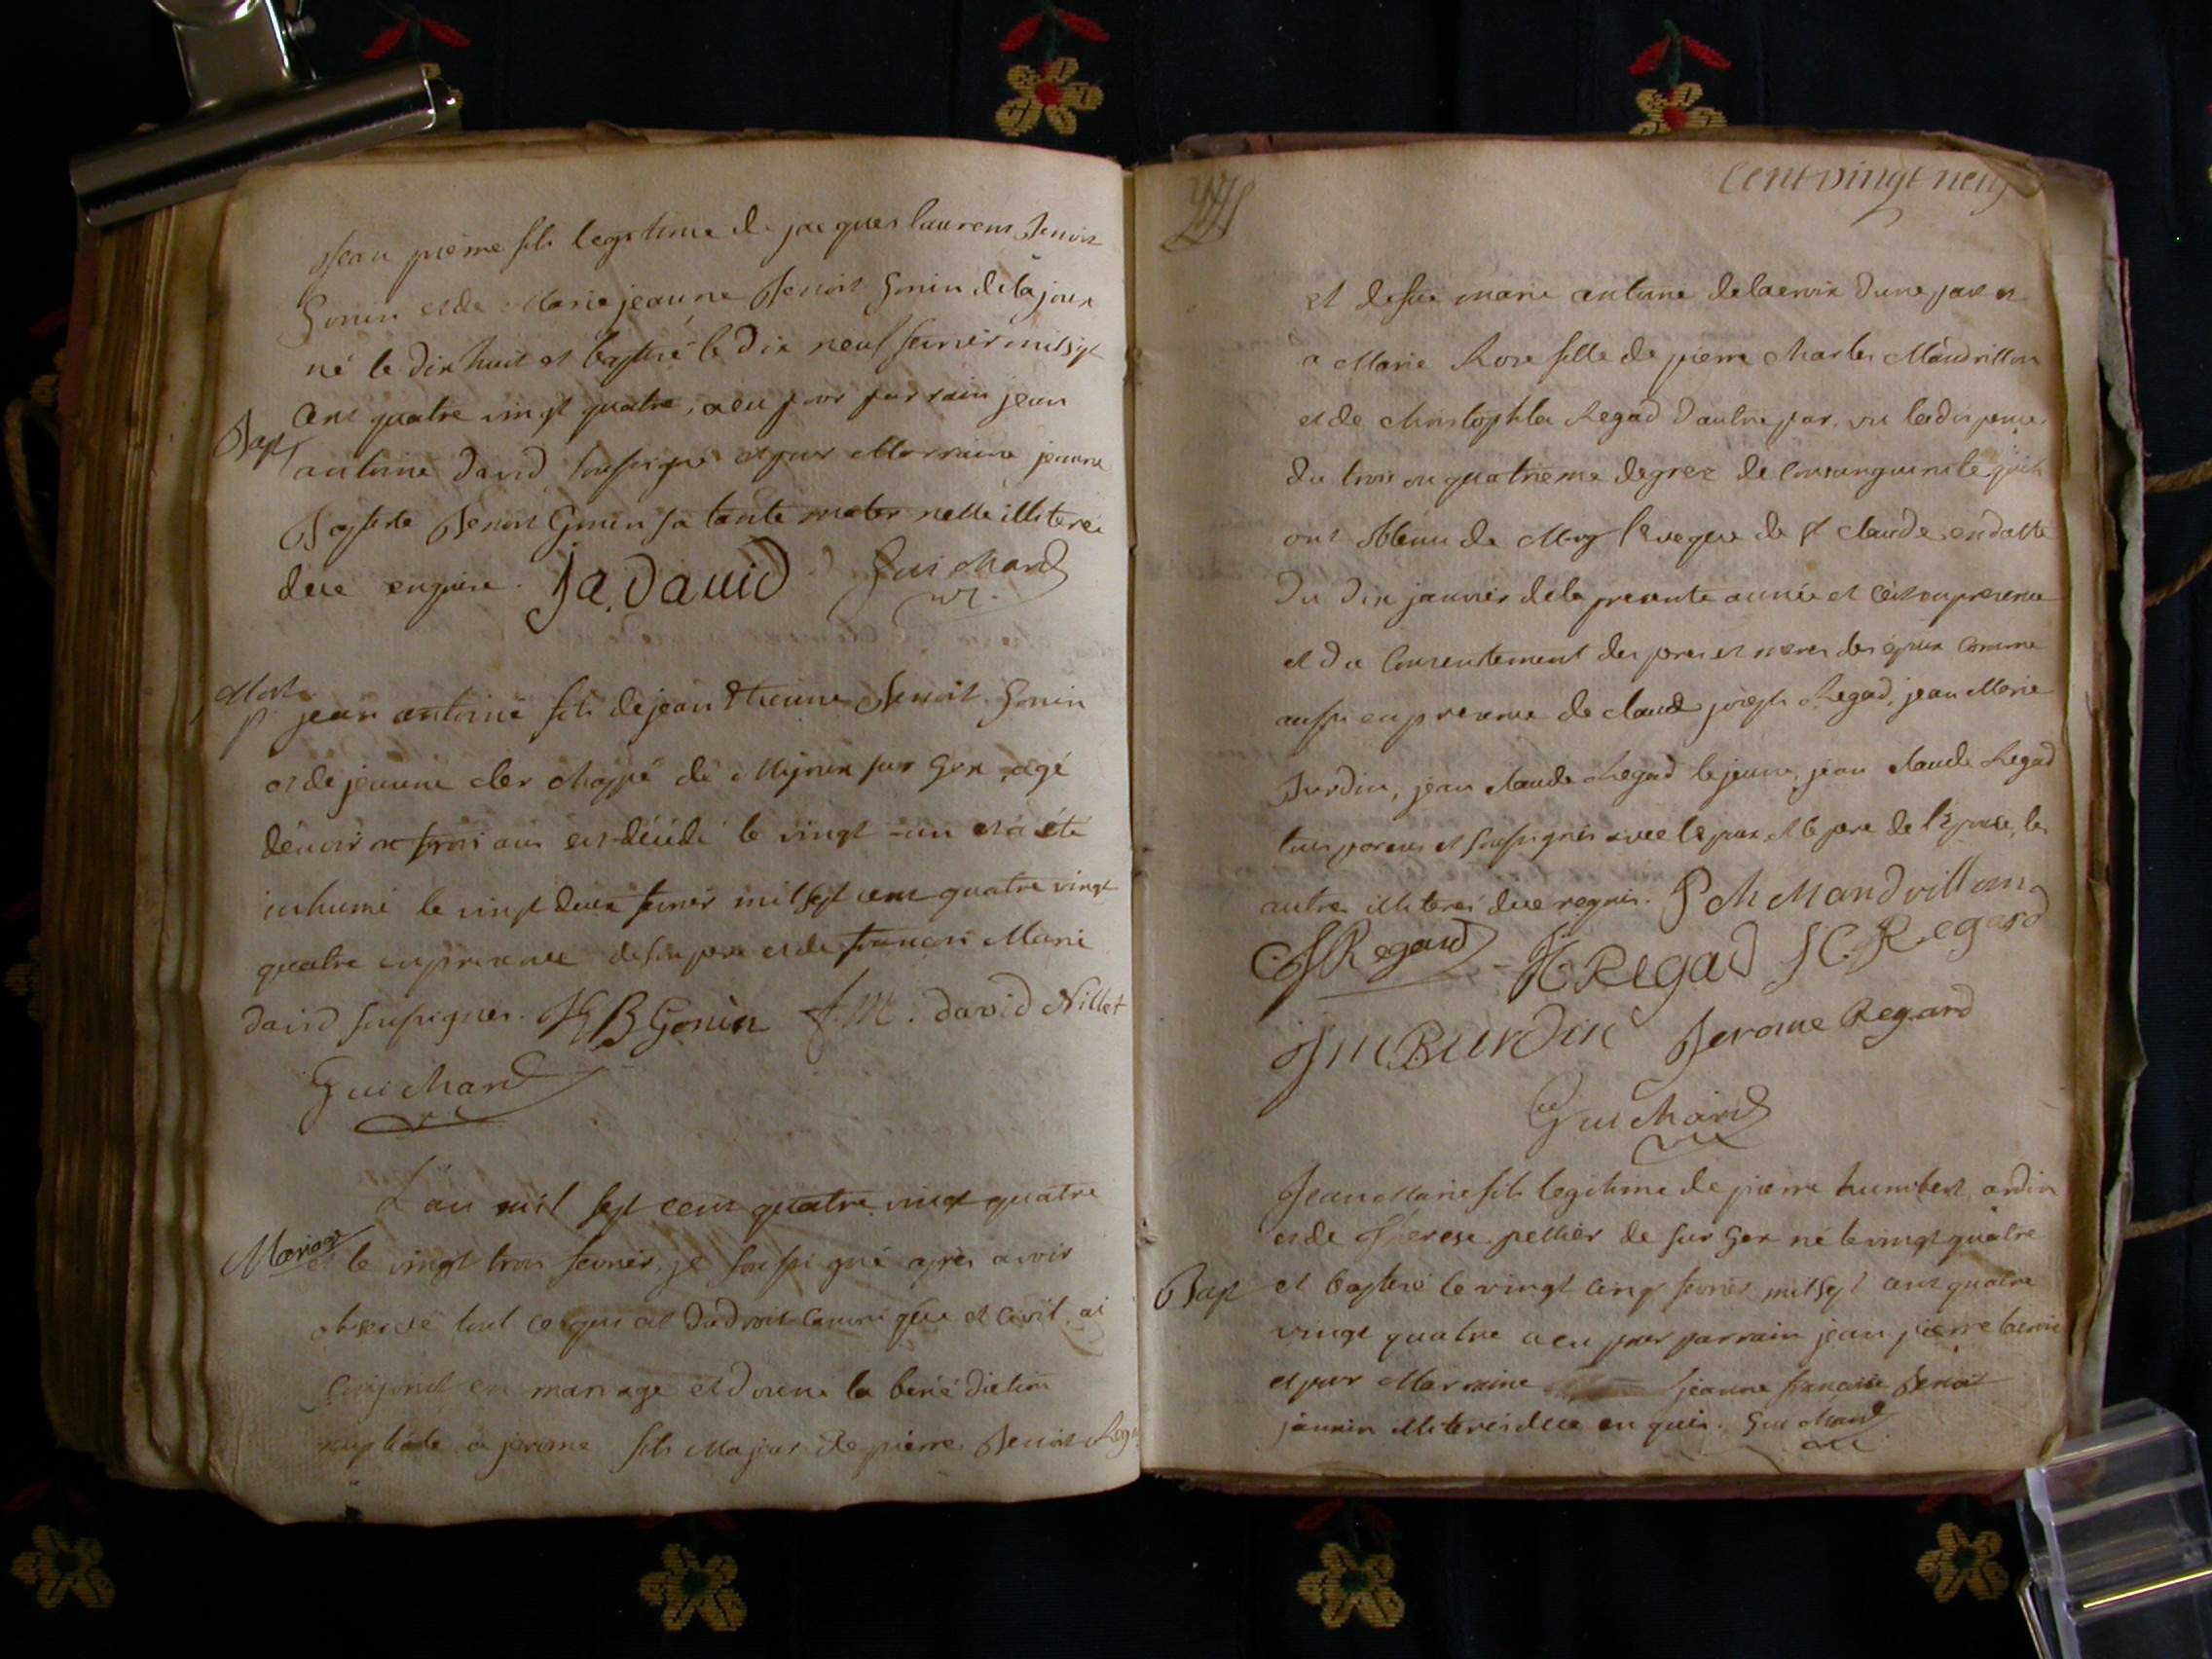 jean pierre fils legitime de jacques laurens Benoit
Gonin et de Marie jeanne Benoit Gonin de la joux
né le dix huit et baptisé le dix neuf fevrier mil sept
Cent quatre vingt quatre, a eu pour parrain jean
Bapt
antoine david soussigné et pour Marraine jeanne
Baptiste Benoit Gonin sa tante maternelle illiterée
duë enquise. Ja. david Guichard
Mort
jean antoine fils de jean Etienne Benoit Gonin
et de jeanne cler chappé de Mijoux sur Gex, agé
ans est décédé le vingt un et a été
inhumé le vingt deux fevrier mil sept cent quatre vingt
quatre en presence de son pere et de francois Marie
david soussignés. JE B Gonin f. M. david Nillet
Guichard
L'an mil sept cent quatre vingt quatre
Mariage
et le vingt trois fevrier, je soussigné après avoir
observé tout ce qui est du droit canonique et civil, ai
conjoint en mariage et donné la bénédiction
nuptiale a jerome fils Majeur de pierre Benoit
Cent vingt neuf
et de fue marie antoine delacroix d'une part et
a Marie Rose fille de pierre Charles Mandrillon
et de Christophla Regad d'autre par, vu la dispense
du trois au quatrieme degrez de Consanguinité qu'ils
ont obtenu de Msg l'Eveque de St Claude en datte
du dix janvier de la presente année et ce en presence
et du Consentement des peres et meres des époux comme
aussi en presence de claude joseph Regad, jean Marie
Burdin, jean claude Regad le jeune, jean claude Regad
tous parens et soussignés avec l'epoux et le pere de l'Epouse, les
autres illiterés due requis. P Ch Mandrillon
CJ Regard JC Regad J C Regard
J m Burdin Jerome Regard
Guichard
Jean Marie fils legitime de pierre humbert ardin
et de Therese pellier de sur Gex né le vingt quatre
Bapt
et baptisé le vingt cinq fevrier mil sept cent quatre
vingt quatre a eu pour parrain jean pierre benoit
et pour Marraine jeanne francoise Benoit
jannin illiterés due enquis. Guichard